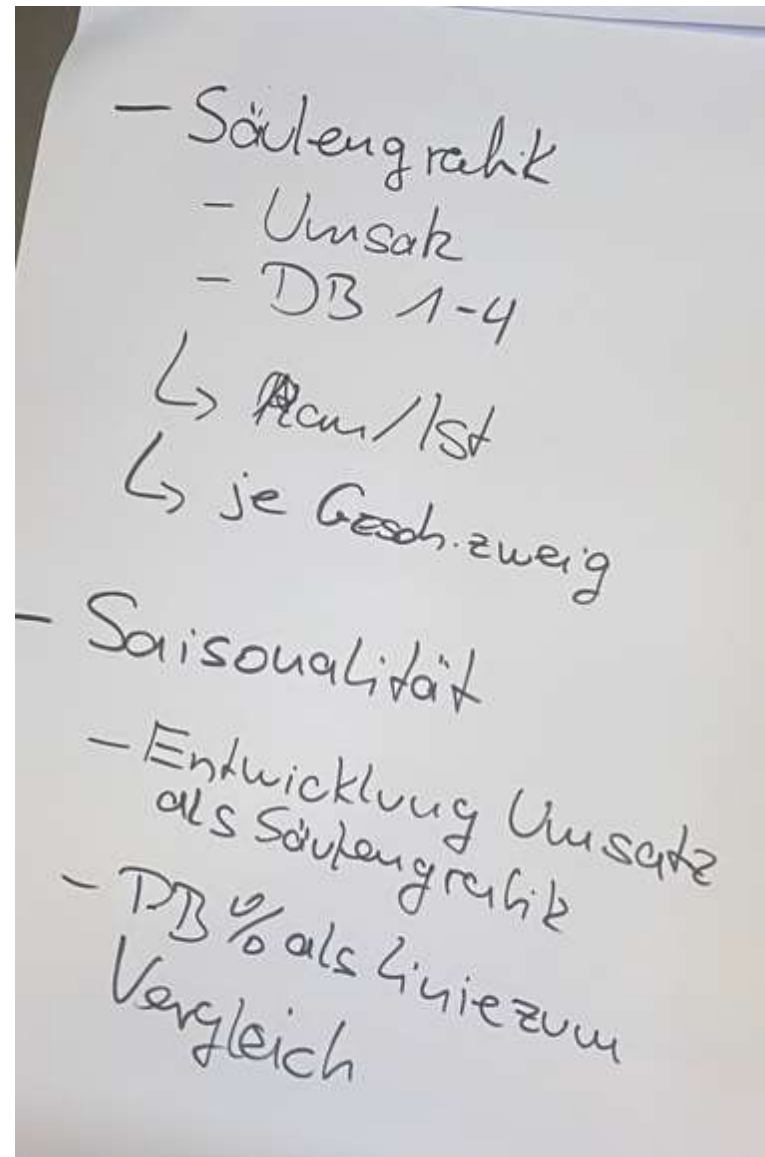 - Säulengrafik
- Umsatz
- DB 1-4
↳ Plan/Ist
↳ je Gesch.zweig
- Saisonalität
- Entwicklung Umsatz
als Säulengrafik
- DB % als Linie zum
Vergleich